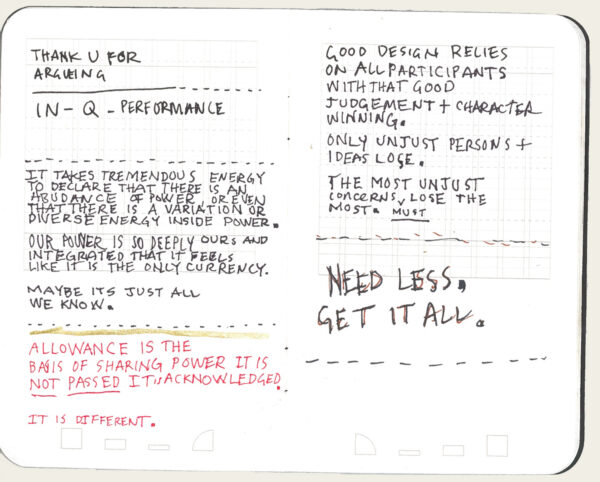 THANK U FOR
ARGUING
IN-Q-PERFORMANCE
IT TAKES TREMENDOUS ENERGY
TO DECLARE THAT THERE IS AN
ABUDANCE OF POWER, OR EVEN
THAT THERE IS A VARIATION OR
DIVERSE ENERGY INSIDE POWER.
OUR POWER IS SO DEEPLY OURS AND
INTEGRATED THAT IT FEELS
LIKE IT IS THE ONLY CURRENCY.
MAYBE ITS JUST ALL
WE KNOW.
ALLOWANCE IS THE
BASIS OF SHARING POWER IT IS
NOT PASSED IT IS ACKNOWLEDGED.
IT IS DIFFERENT.
GOOD DESIGN RELIES
ON ALL PARTICIPANTS
WITH THAT GOOD
JUDGEMENT + CHARACTER
WINNING.
ONLY UNJUST PERSONS +
IDEAS LOSE.
THE MOST UNJUST
CONCERNS, LOSE THE
MOST. MUST
NEED LESS.
GET IT ALL.